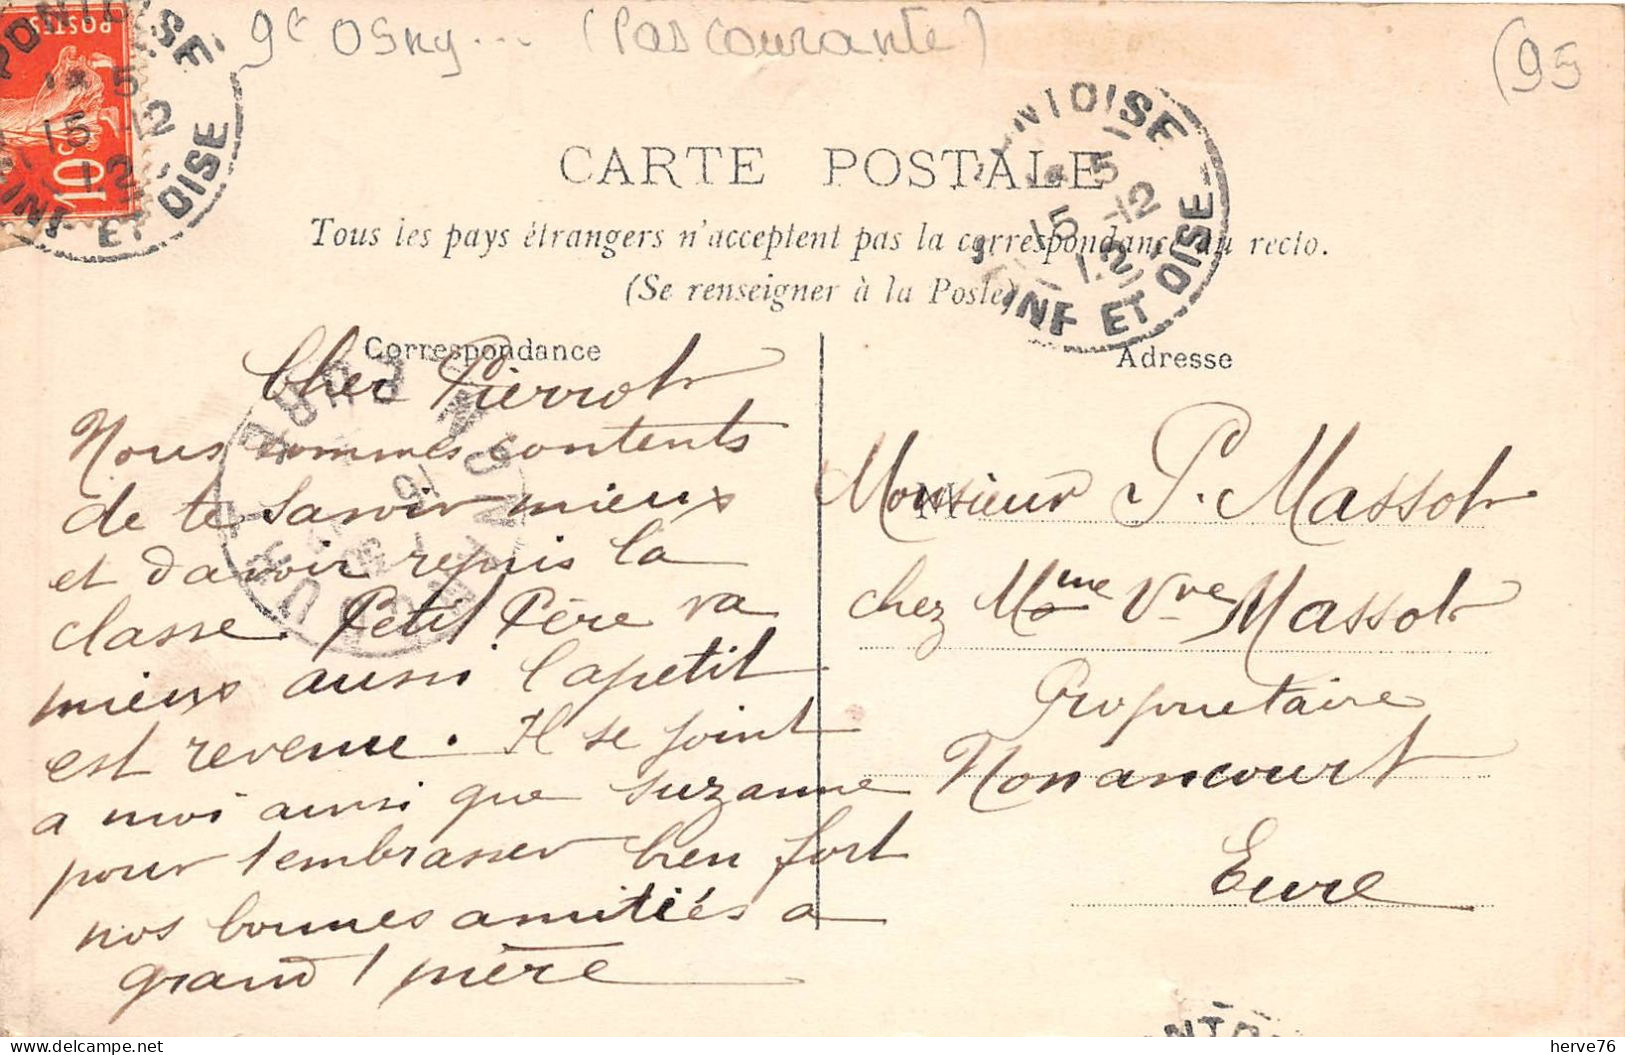 9c Osny... (Pas courante)
(95
POSTES
10c
PONTOISE
15-12
12
ET OISE
NTOISE
5
15-12
12
INE ET OISE
CARTE POSTALE
Tous les pays étrangers n'acceptent pas la correspondance au recto.
(Se renseigner à la Poste)
Correspondance
Cher Pierrot
Nous sommes contents
de te savoir mieux
et d'avoir repris la
classe. Petit Père va
mieux aussi l'apetit
est revenue. Il se joint
a moi ainsi que Suzanne
pour t'embrasser bien fort
nos bonnes amitiés a
grand'mère
EURE
Adresse
Monsieur P. Massot
chez Mme Vve Massot
Proprietaire
Nonancourt
Eure
herve76